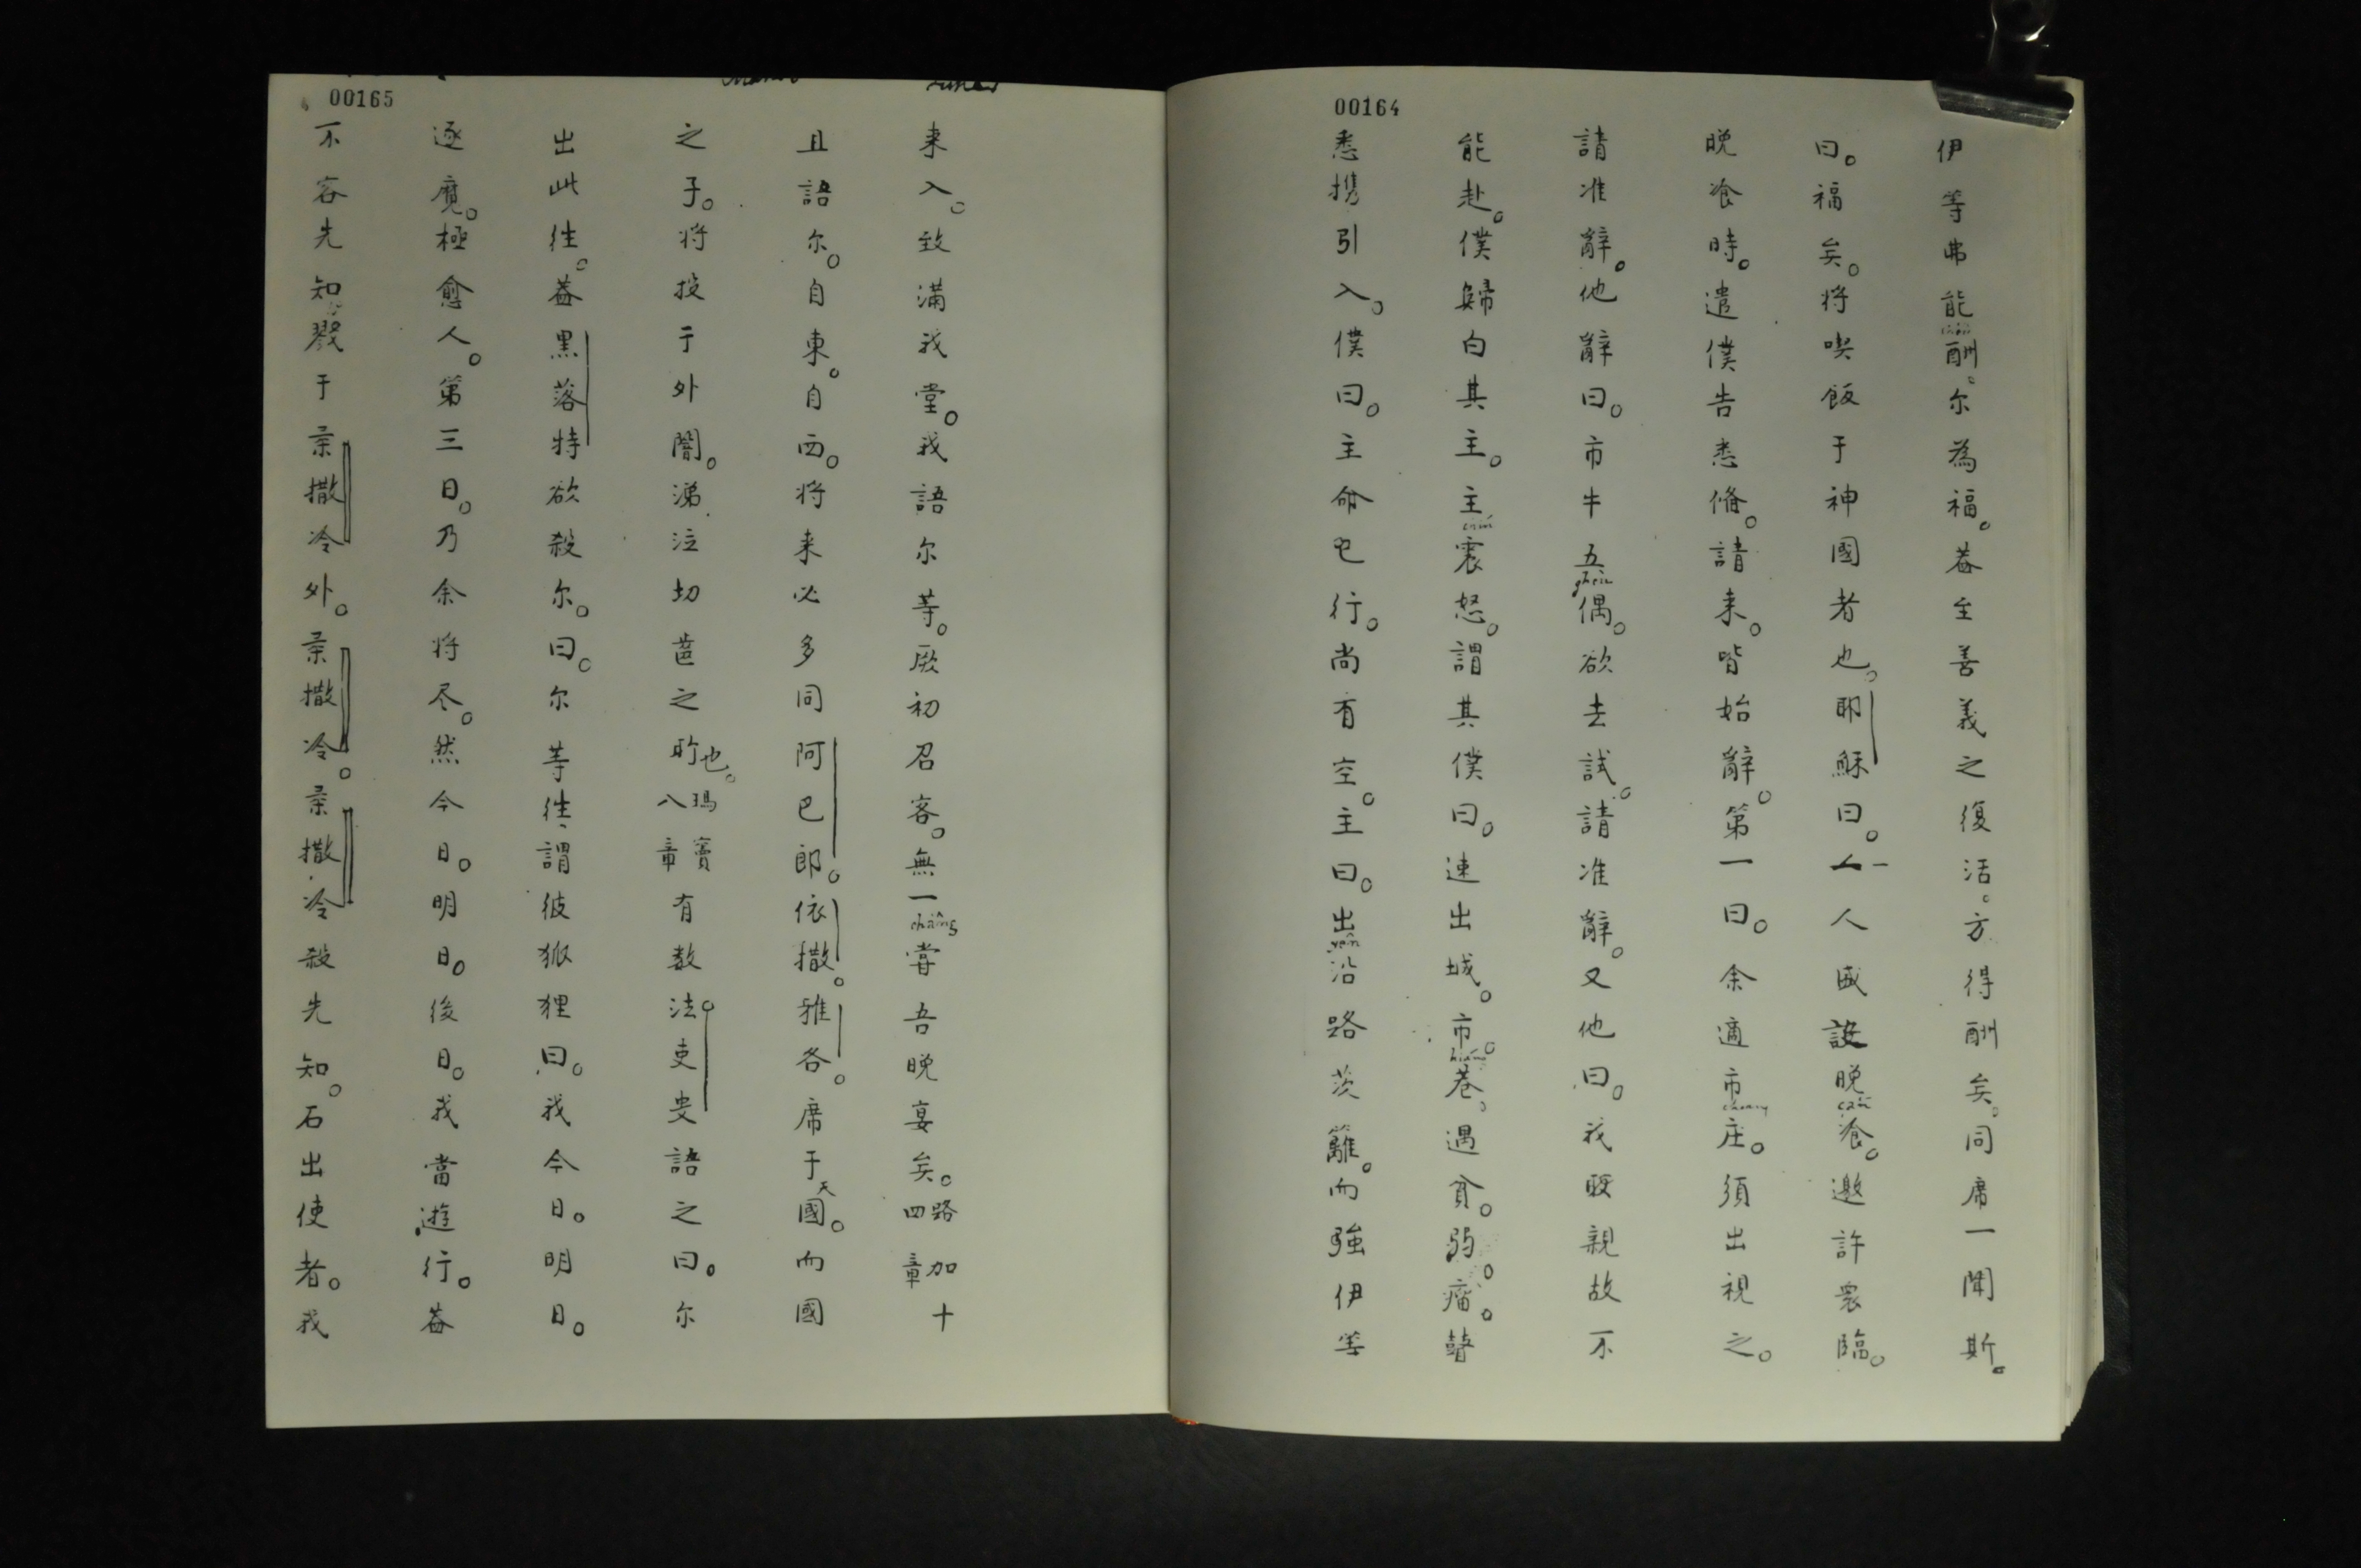 00164
伊等弗能酬。尔為福。葢至善義之復活。方得酬矣。同席一聞斯。
曰。福矣。将喫飯于神國者也。耶穌曰。一人盛設晚飡。邀許衆臨。
晚飡時。遣僕告悉俻。請来。皆始辭。第一曰。余適市庄。須出視之。
請准辭。他辭曰。市牛五偶。欲去試。請准辭。又他曰。我娶親故不
能赴。僕歸白其主。主震怒。謂其僕曰。速出城。市巷。遇貧。弱。瘤。瞽
悉携引入。僕曰。主命已行。尚有空。主曰。出沿路茨籬。而強伊等
00165
来入。致滿我堂。我語尔等。厥初召客。無一甞吾晚宴矣。路加十四章
且語尔。自東。自西。将来必多同阿巴郎。依撒。雅各。席于天國。而國
之子。将投于外闇。涕泣切齒之所也。瑪竇八章有数法吏叟語之曰。尔
出此徃。葢黒落特欲殺尔。曰。尔等徃謂彼狐狸曰。我今日。明日。
逐魔。極愈人。第三日。乃余将尽。然今日。明日。後日。我當遊行。葢
不容先知戮于柔撒冷外。柔撒冷。柔撒冷殺先知。石出使者。我